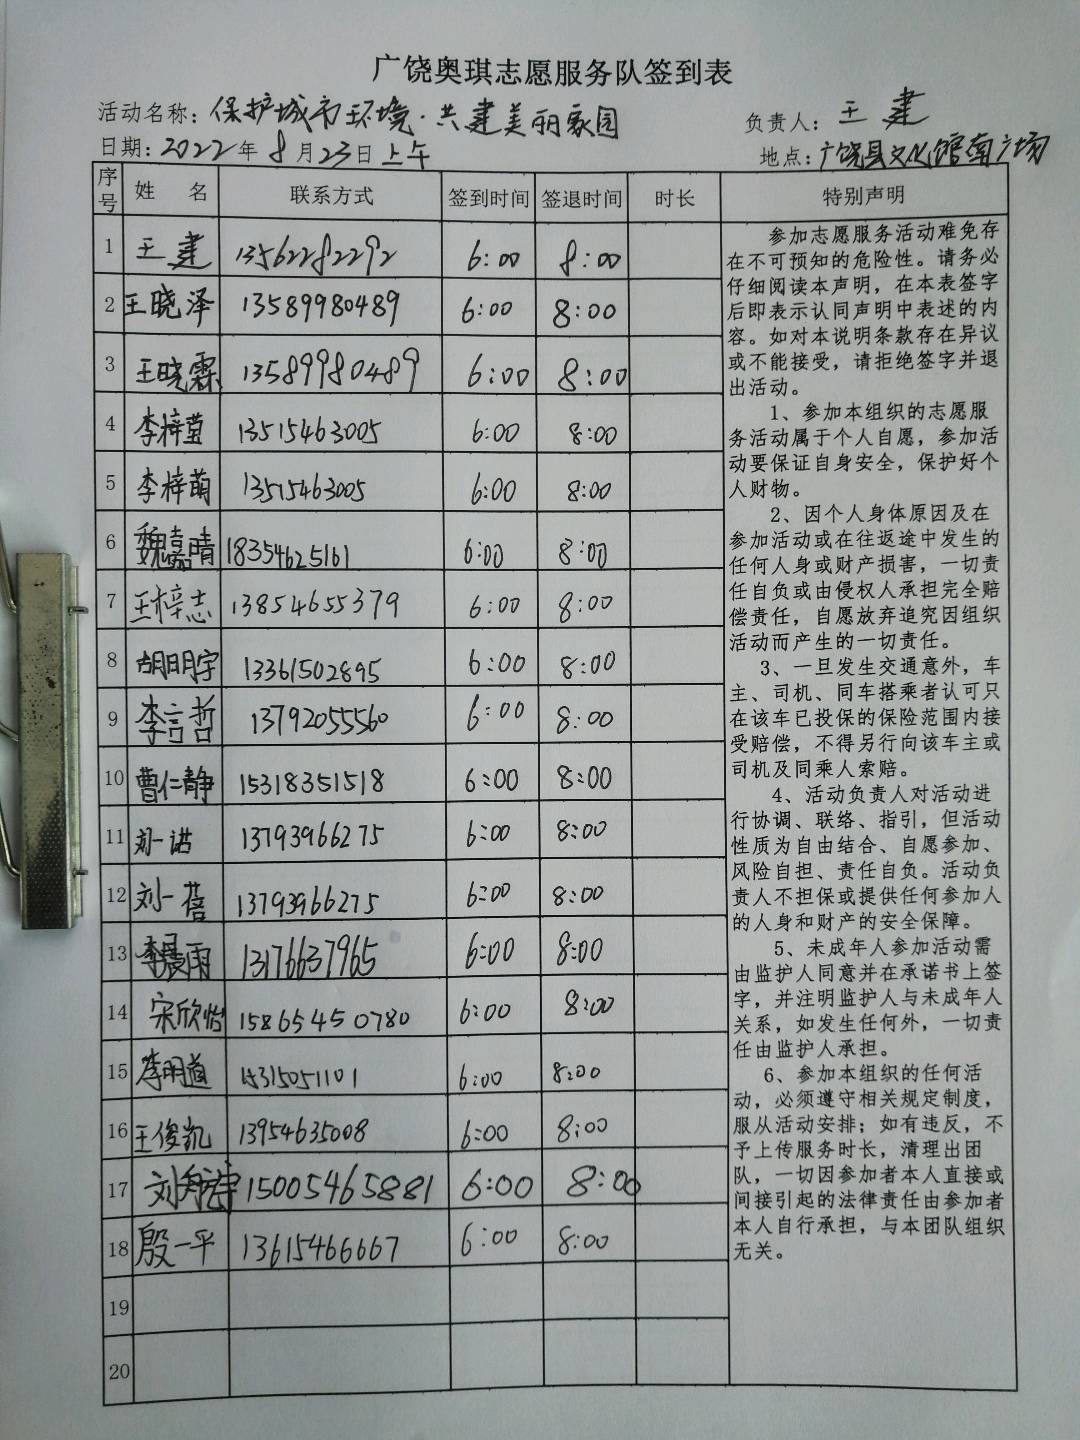 广饶奥琪志愿服务队签到表
活动名称：保护城市环境·共建美丽家园 负责人：王建
日期：2022年8月23日上午 地点：广饶县文化馆南广场
序号 姓名 联系方式 签到时间 签退时间 时长 特别声明
1 王建 13562282292 6:00 8:00
2 王晓泽 13589980489 6:00 8:00
3 王晓霖 13589980489 6:00 8:00
4 李梓莹 13515463005 6:00 8:00
5 李梓萌 13515463005 6:00 8:00
6 魏嘉晴 18354625161 6:00 8:00
7 王梓志 13854655379 6:00 8:00
8 胡明宇 13361502895 6:00 8:00
9 李言哲 13792055560 6:00 8:00
10 曹仁静 15318351518 6:00 8:00
11 刘一诺 13793966275 6:00 8:00
12 刘一蓓 13793966275 6:00 8:00
13 李晨雨 13176637965 6:00 8:00
14 宋欣怡 15865450780 6:00 8:00
15 李明道 15315051101 6:00 8:00
16 王俊凯 13954635008 6:00 8:00
17 刘 15005465881 6:00 8:00
18 殷一平 13615466667 6:00 8:00
19
20
参加志愿服务活动难免存
在不可预知的危险性。请务必
仔细阅读本声明，在本表签字
后即表示认同声明中表述的内
容。如对本说明条款存在异议
或不能接受，请拒绝签字并退
出活动。
1、参加本组织的志愿服
务活动属于个人自愿，参加活
动要保证自身安全，保护好个
人财物。
2、因个人身体原因及在
参加活动或在往返途中发生的
任何人身或财产损害，一切责
任自负或由侵权人承担完全赔
偿责任，自愿放弃追究因组织
活动而产生的一切责任。
3、一旦发生交通意外，车
主、司机、同车搭乘者认可只
在该车已投保的保险范围内接
受赔偿，不得另行向该车主或
司机及同乘人索赔。
4、活动负责人对活动进
行协调、联络、指引，但活动
性质为自由结合、自愿参加、
风险自担、责任自负。活动负
责人不担保或提供任何参加人
的人身和财产的安全保障。
5、未成年人参加活动需
由监护人同意并在承诺书上签
字，并注明监护人与未成年人
关系，如发生任何外，一切责
任由监护人承担。
6、参加本组织的任何活
动，必须遵守相关规定制度，
服从活动安排；如有违反，不
予上传服务时长，清理出团
队，一切因参加者本人直接或
间接引起的法律责任由参加者
本人自行承担，与本团队组织
无关。